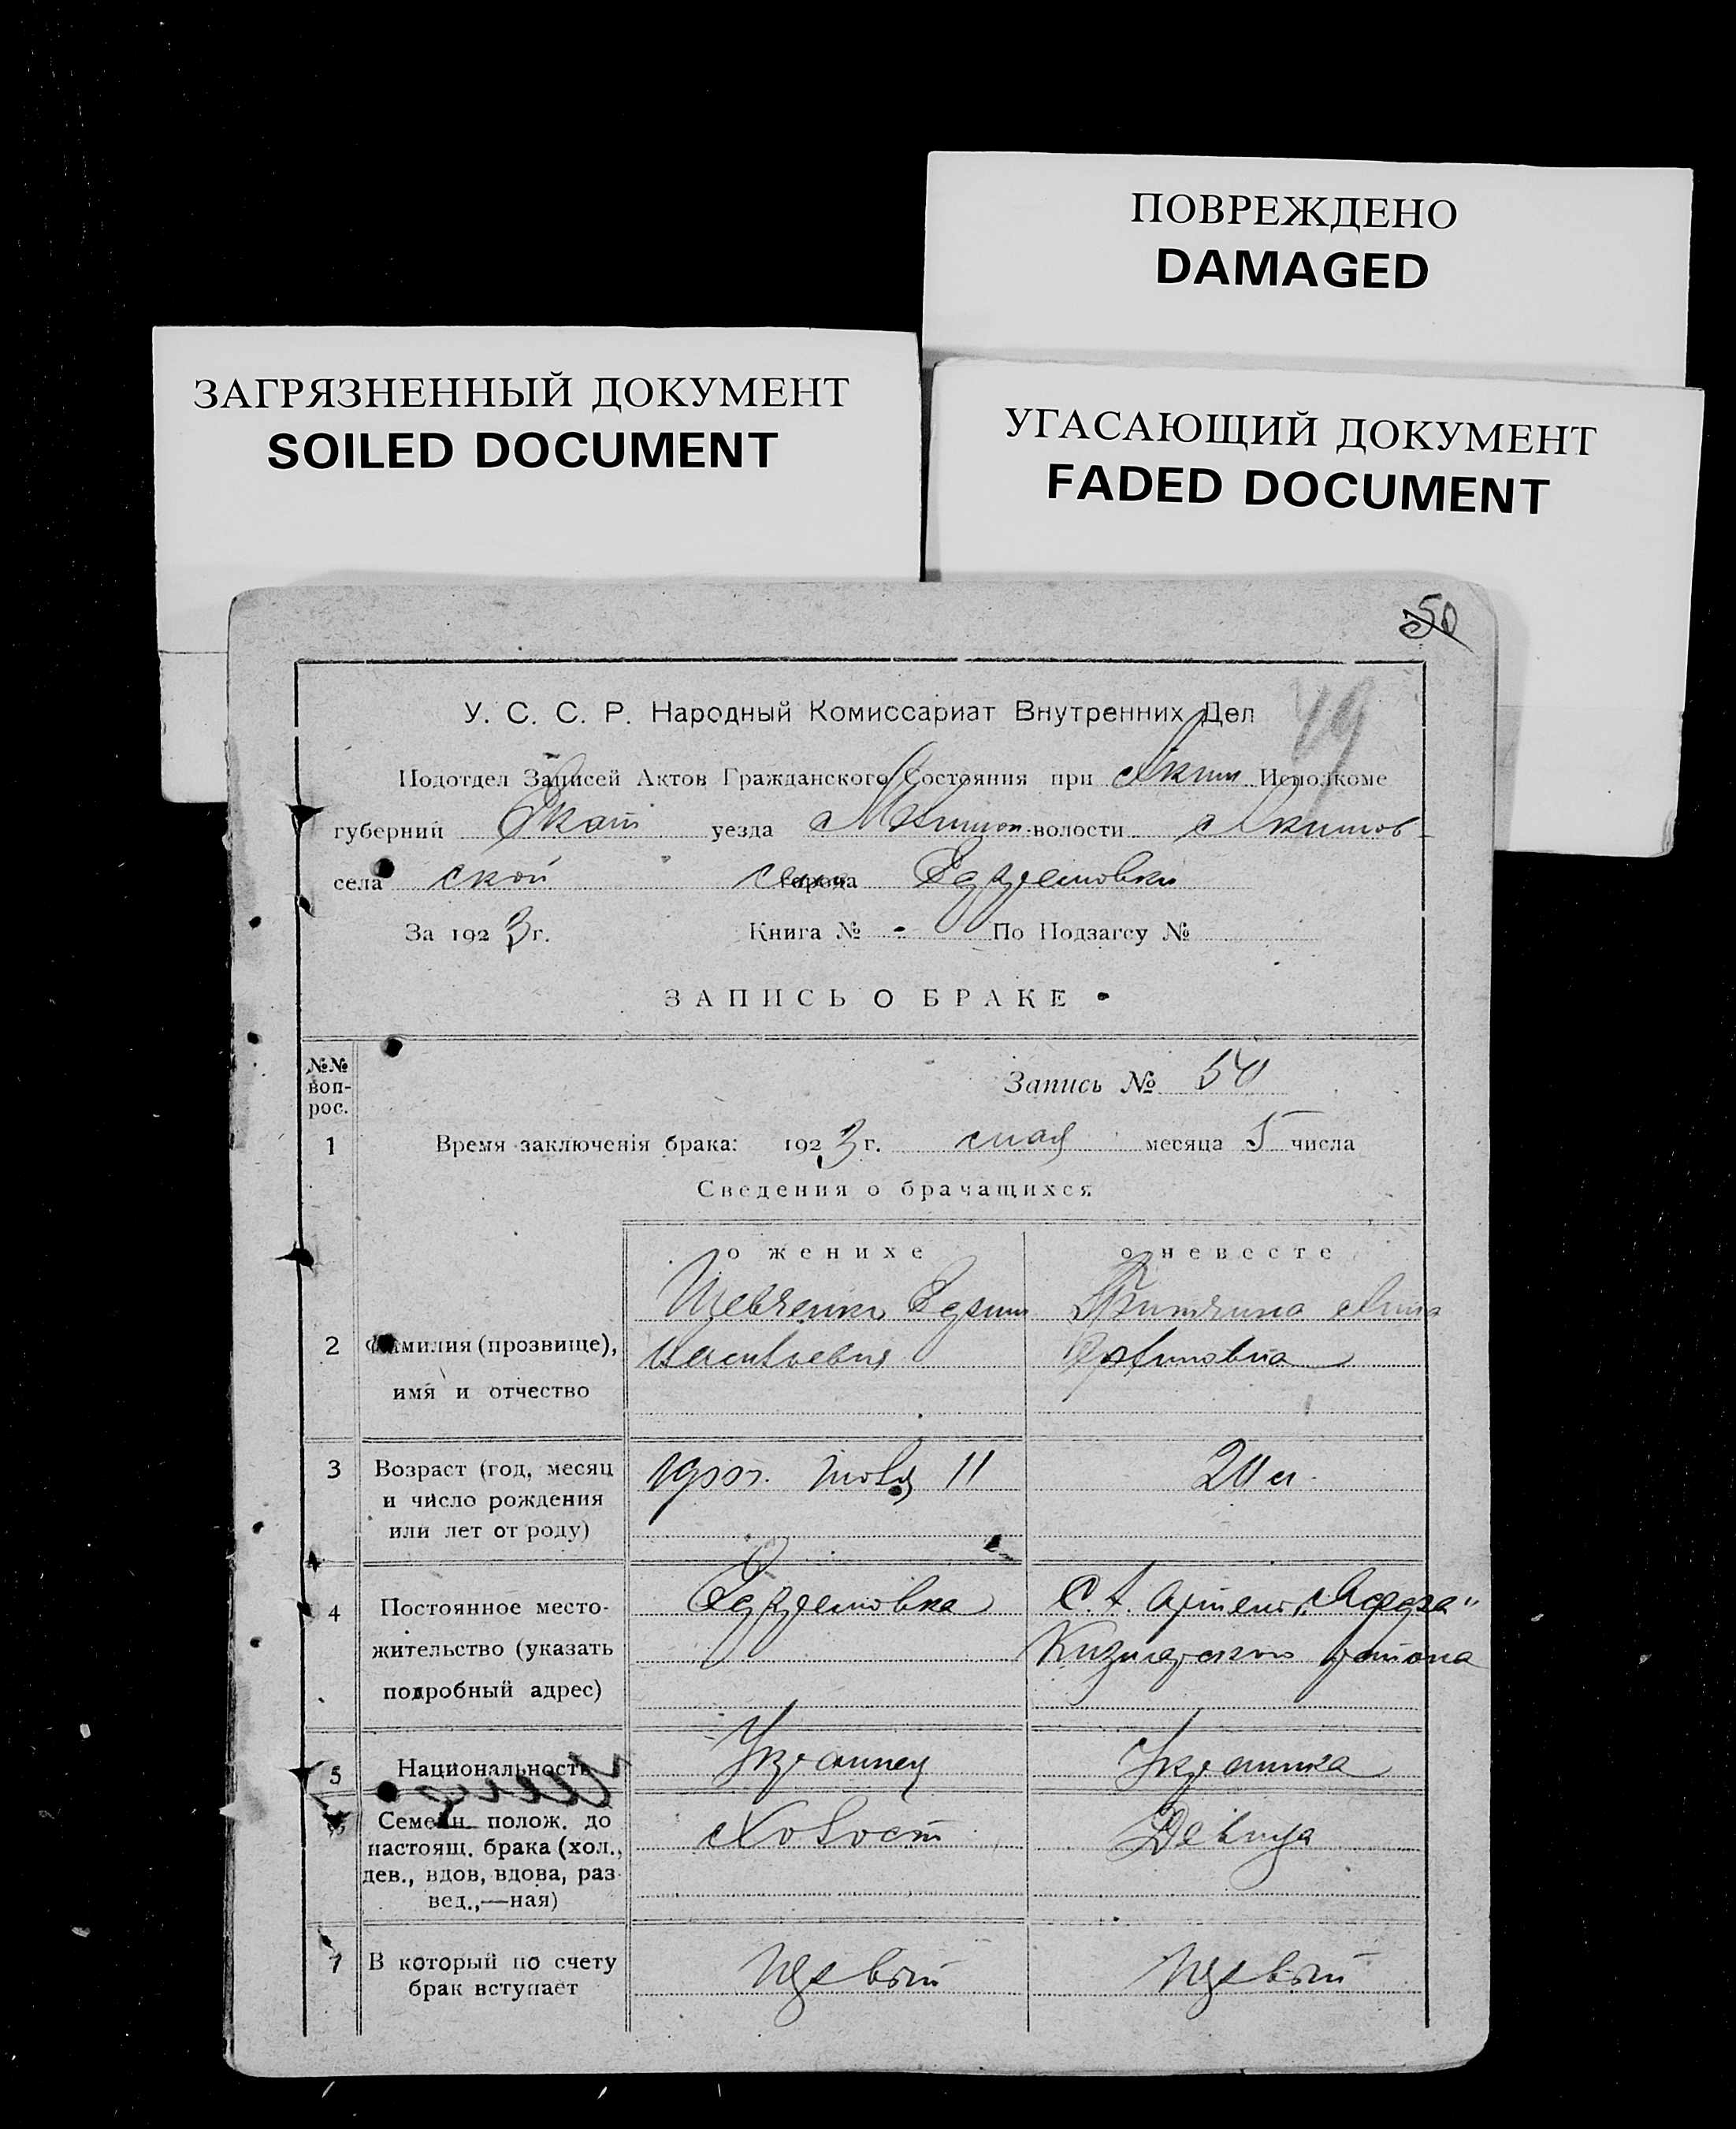 ПОВРЕЖДЕНО
DAMAGED
ЗАГРЯЗНЕННЫЙ ДОКУМЕНТ
SOILED DOCUMENT
УГАСАЮЩИЙ ДОКУМЕНТ
FADED DOCUMENT
50
49
У. С. С. Р. Народный Комиссариат Внутренних Дел
Подотдел Записей Актов Гражданского Состояния при Аким. Исполкоме
губерний Екат уезда волости Акимов-
села ской села города
За 1923 г. Книга № - По Подзагсу №
ЗАПИСЬ О БРАКЕ
№№ воп-рос.
Запись № 50
1 Время заключенія брака: 1923 г. мая месяца 5 числа
Сведения о брачащихся
о женихе о невесте
Шевченко Анна
2 Фамилия (прозвище), Васильевич
имя и отчество
3 Возраст (год, месяц 1900 г. 11 20 л.
и число рождения
или лет от роду)
4 Постоянное место- С. Х. Артель
жительство (указать района
подробный адрес)
5 Национальность Украинец Украинка
6 Семейн. полож. до Холост Девица
настоящ. брака (хол.,
дев., вдов, вдова, раз-
вед.,—ная)
7 В который по счету Первый Первый
брак вступает